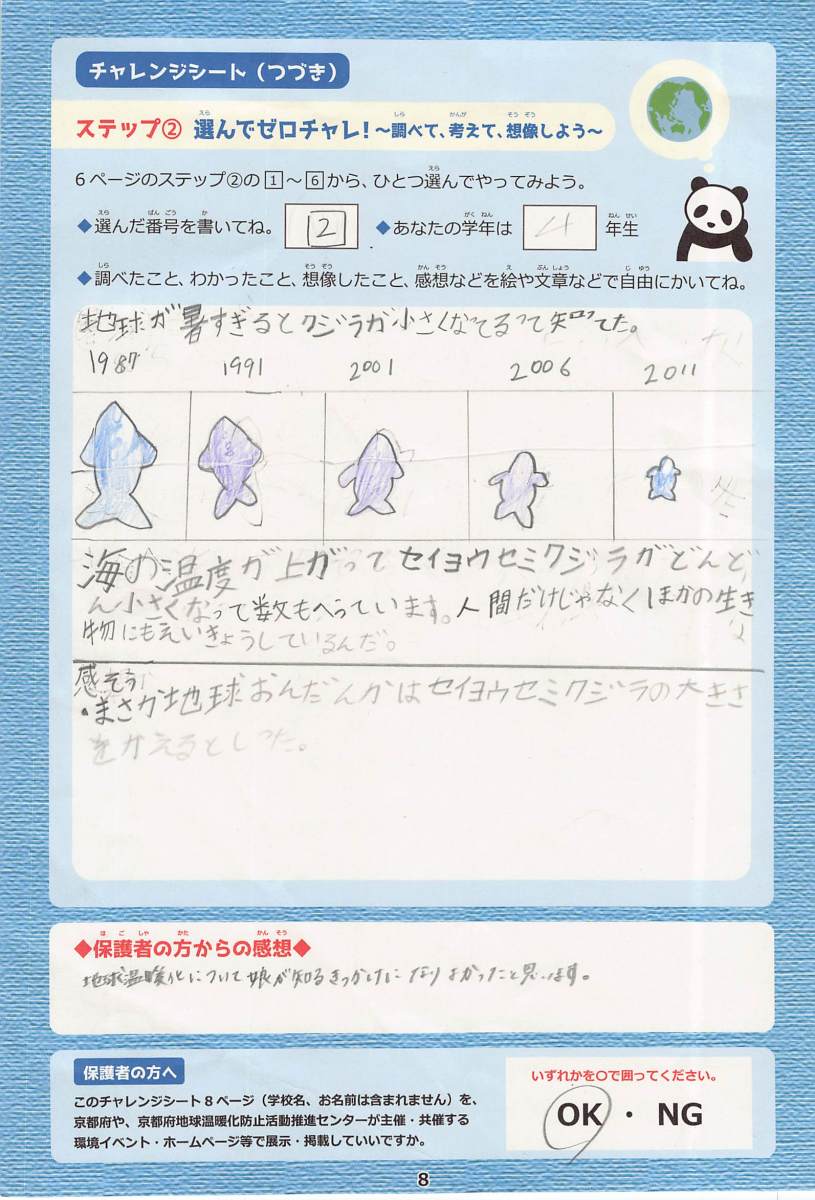 チャレンジシート(つづき)
ステップ② 選んでゼロチャレ!~調べて、考えて、想像しよう~
6ページのステップ②の1~6から、ひとつ選んでやってみよう。
◆選んだ番号を書いてね。 2 ◆あなたの学年は 4 年生
◆調べたこと、わかったこと、想像したこと、感想などを絵や文章などで自由にかいてね。
地球が暑すぎるとクジラが小さくなってるって知ってた。
1987 1991 2001 2006 2011
海の温度が上がってセイヨウセミクジラがどんど
ん小さくなって数もへっています。人間だけじゃなくほかの生き
物にもえいきょうしているんだ。
感そう
・まさか地球おんだんかはセイヨウセミクジラの大きさ
をかえるとしった。
◆保護者の方からの感想◆
地球温暖化について娘が知るきっかけになりよかったと思います。
保護者の方へ
このチャレンジシート8ページ(学校名、お名前は含まれません)を、
京都府や、京都府地球温暖化防止活動推進センターが主催・共催する
環境イベント・ホームページ等で展示・掲載していいですか。
いずれかを○で囲ってください。
OK ・ NG
8